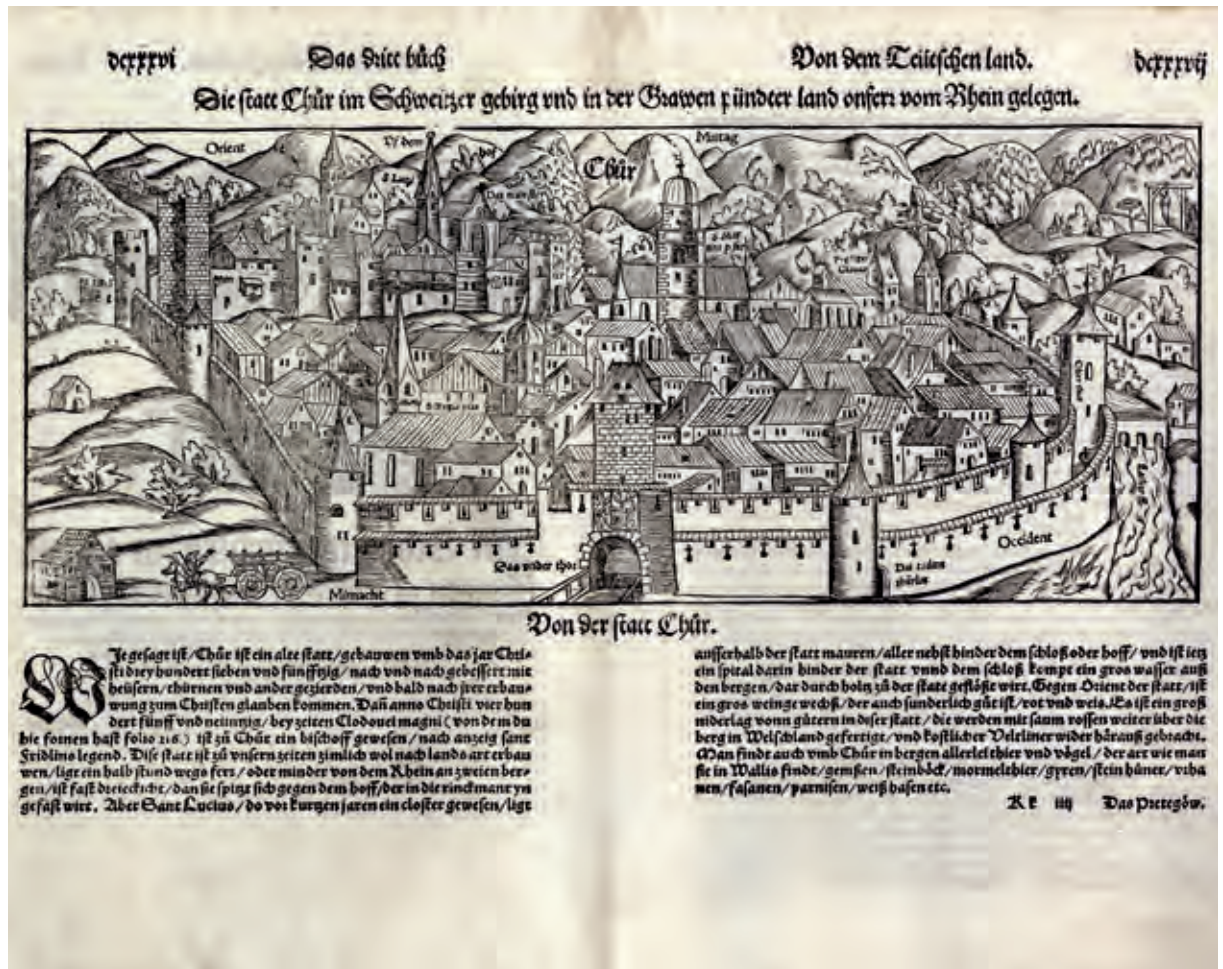 dcxxxvi
Das dritt bůch
Von dem Teütschen land.
dcxxxvij
Die statt Chůr im Schweitzer gebirg vnd in der Grawen pündter land onferr vom Rhein gelegen.
Orient
Vf dem
hof
Chůr
Mittag
S. Lucy
Das wider thor
Mitnacht
Occident
Von der statt Chůr.
WJe gesagt ist/Chůr ist ein alte statt/gebauwen vmb das jar Chri-
sti drey hundert sieben vnd fünfftzig/nach vnd nach gebessert mit
heüsern/thürnen vnd ander gezierden/vnd bald nach jrer erbau-
wung zum Christen glauben kommen. Dañ anno Christi vier hun
dert fünff vnd neüntzig/bey zeiten Clodouei magni (von dem du
hie fornen hast folio 216.) ist zů Chůr ein bischoff gewesen/nach anzeig sant
Fridlins legend. Dise statt ist zů vnsern zeiten zimlich wol nach lands art erbau
wen/ligt ein halb stund wegs ferr/oder minder von dem Rhein an zweien ber-
gen/ist fast dreieckicht/dan sie spitzt sich gegen dem hoff/der in die rinckmaur yn
gefast wirt. Aber Sant Lucius/do vor kurtzen jaren ein closter gewesen/ligt
ausserhalb der statt mauren/aller nehst hinder dem schloß oder hoff/vnd ist ietz
ein spital darin hinder der statt vnnd dem schloß kompt ein gros wasser auß
den bergen/dar durch holtz zů der statt geflößt wirt. Gegen Orient der statt/ist
ein gros weingewechß/der auch sunderlich gůt ist/rot vnd weis. Es ist ein groß
niderlag vonn gütern in diser statt/die werden mit saum rossen weiter über die
berg in Welschland gefertigt/vnd kostlicher Veltliner wider härauß gebracht.
Man findt auch vmb Chůr in bergen allerlei thier vnd vögel/der art wie man
sie in Wallis findt/gemßen/steinböck/mormelthier/gyren/stein hüner/vrha
nen/fasanen/parnisen/weiß hasen etc.
Kk iiij Das Pretegöw.